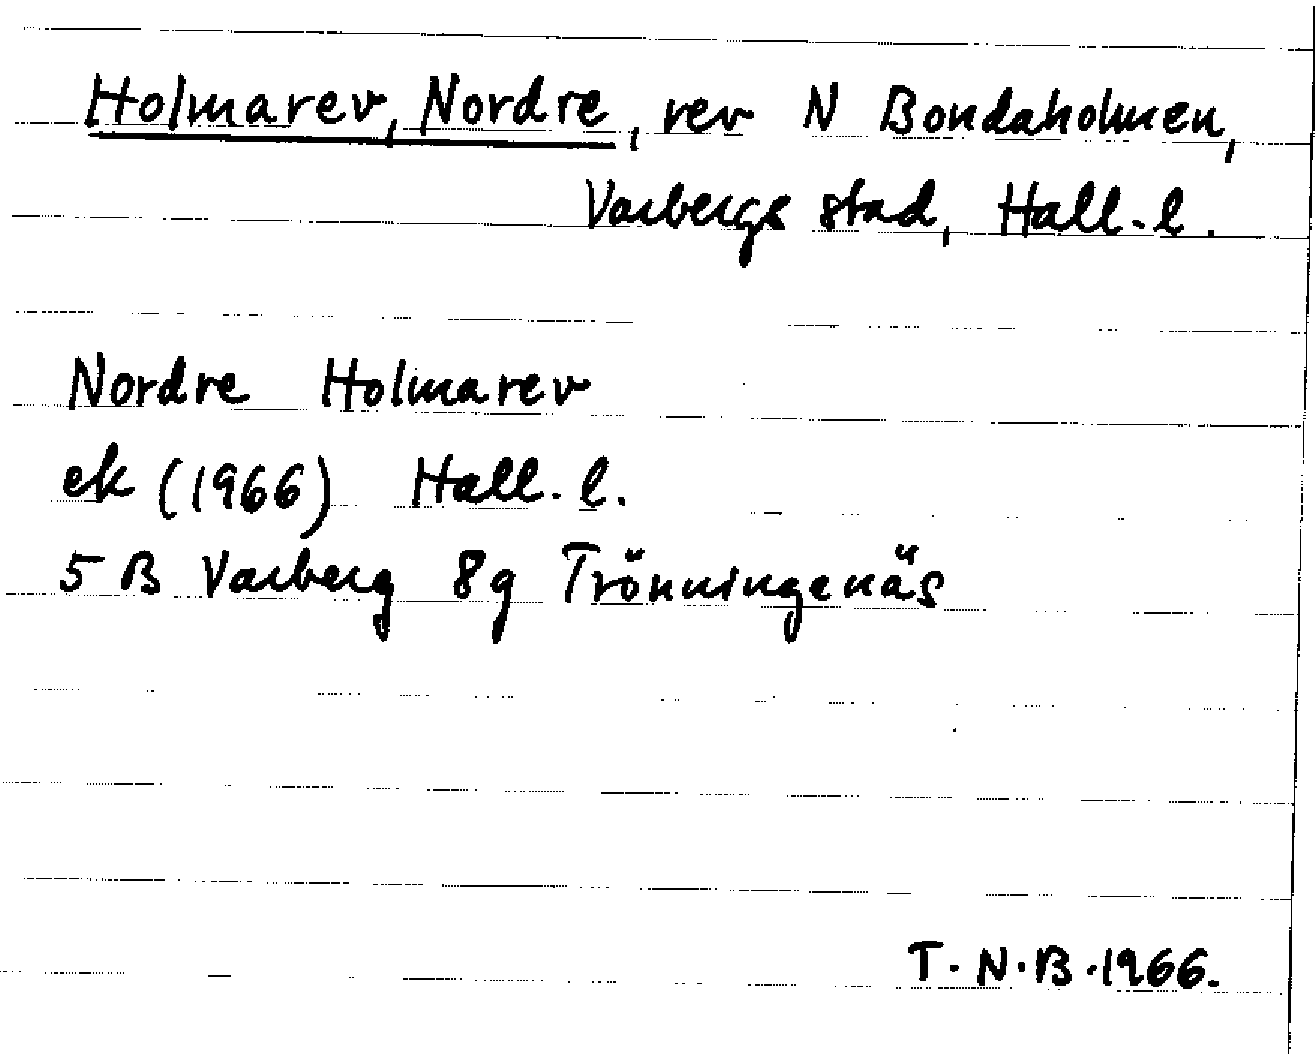 Holmarev, Nordre, rev N Bondaholmen,
Varbergs stad, Hall. l.
Nordre Holmarev
ek (1966) Hall. l.
5 B Varberg 8g Trönningenäs
T. N. B. 1966.